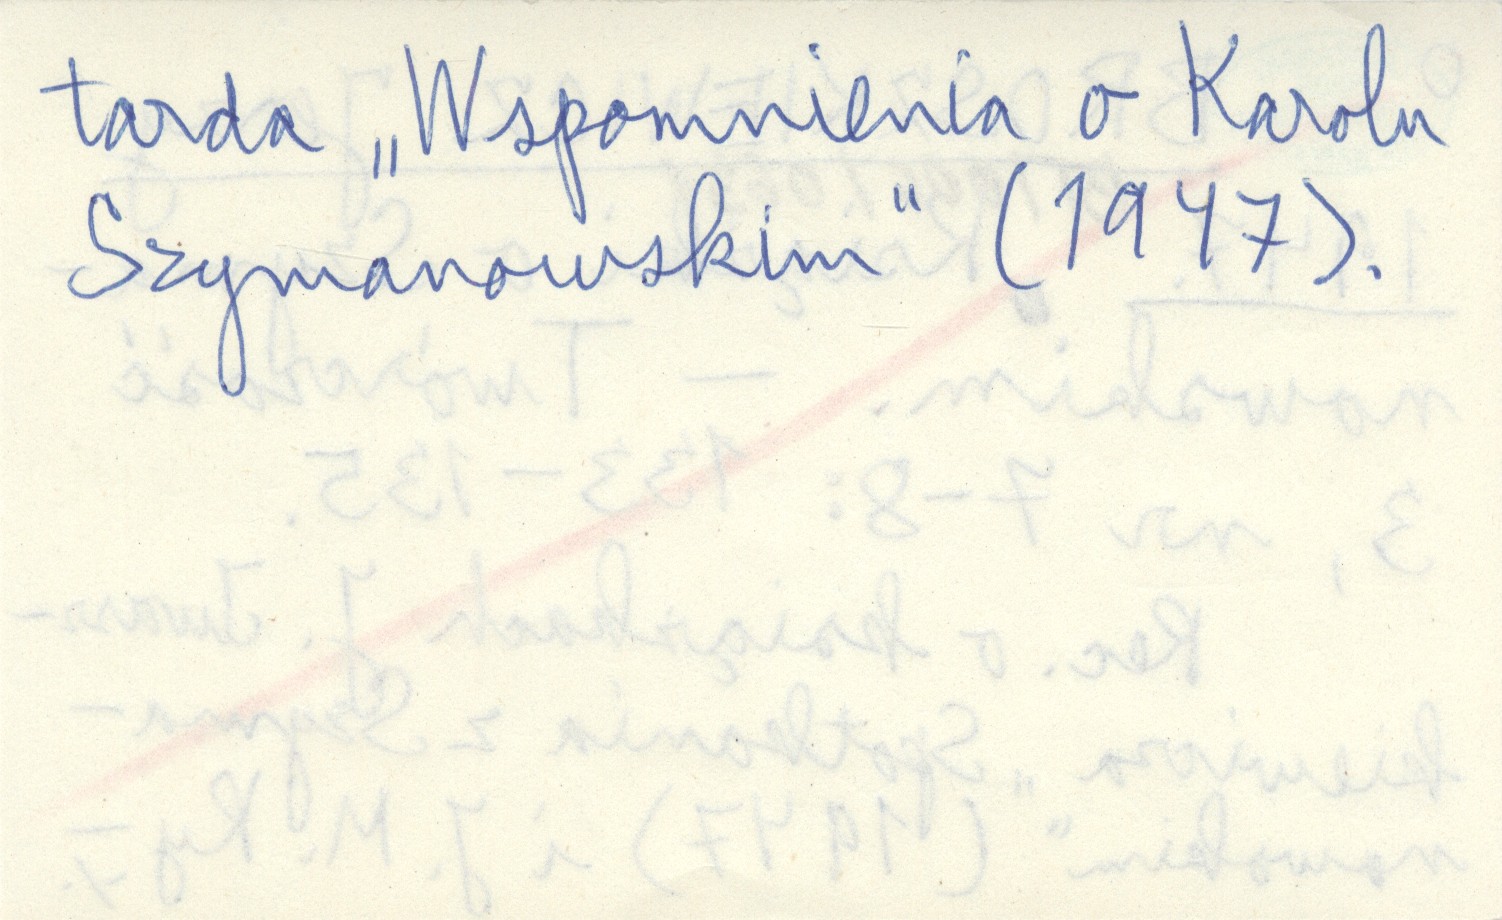 tarda „Wspomnienia o Karolu
Szymanowskim" (1947).